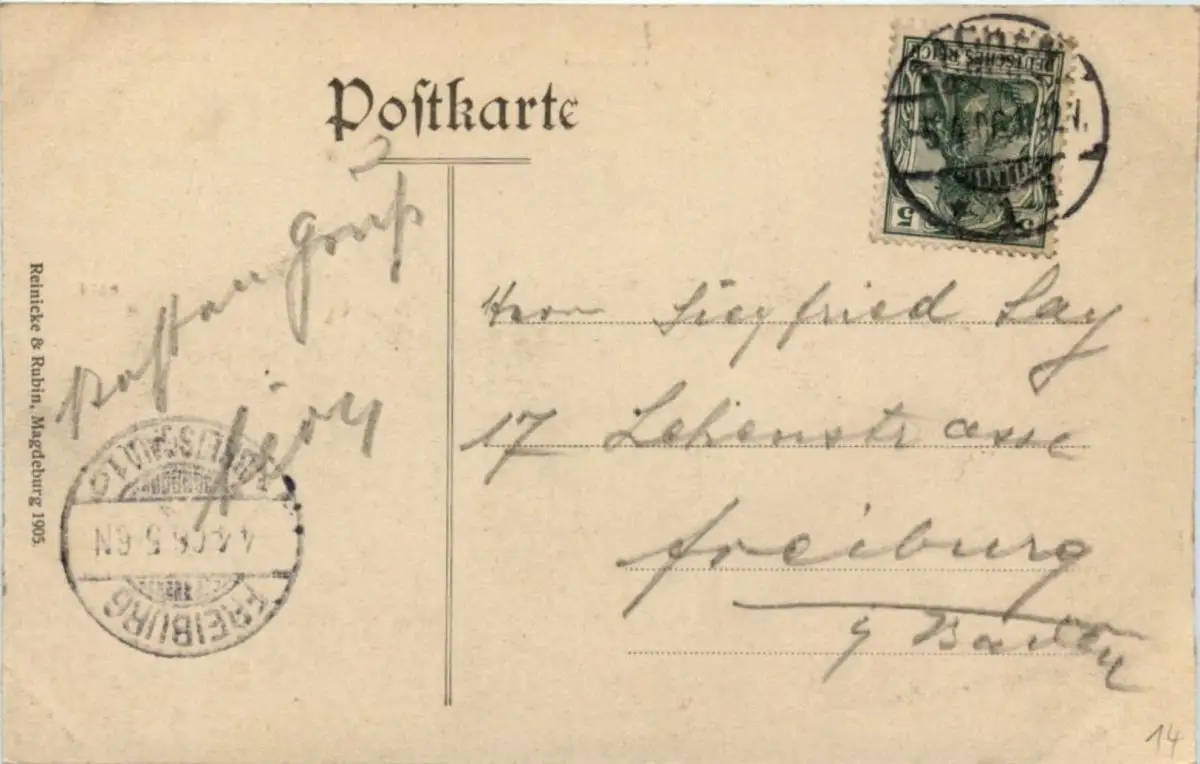 Postkarte
DEUTSCHES REICH
5 5
Gruß
Herrn Siegfried Lay
17 Lehenstrasse
Freiburg
Baden
Reinicke & Rubin, Magdeburg 1905.
FREIBURG
4.4.06.5-6N
14